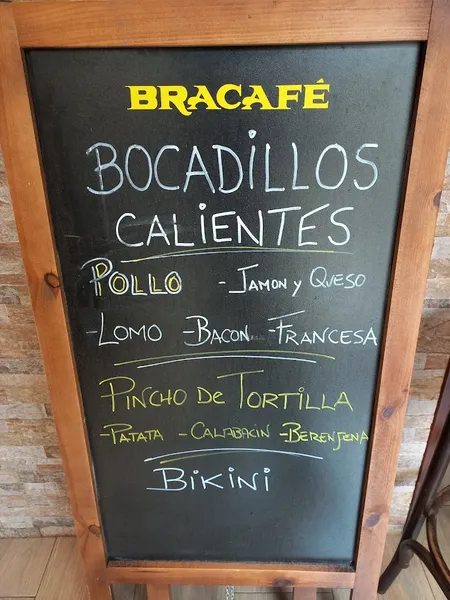 BRACAFÉ
BOCADILLOS
CALIENTES
POLLO - JAMON Y QUESO
-LOMO -BACON -FRANCESA
PINCHO DE TORTILLA
-PATATA -CALABACIN -BERENJENA
BIKINI